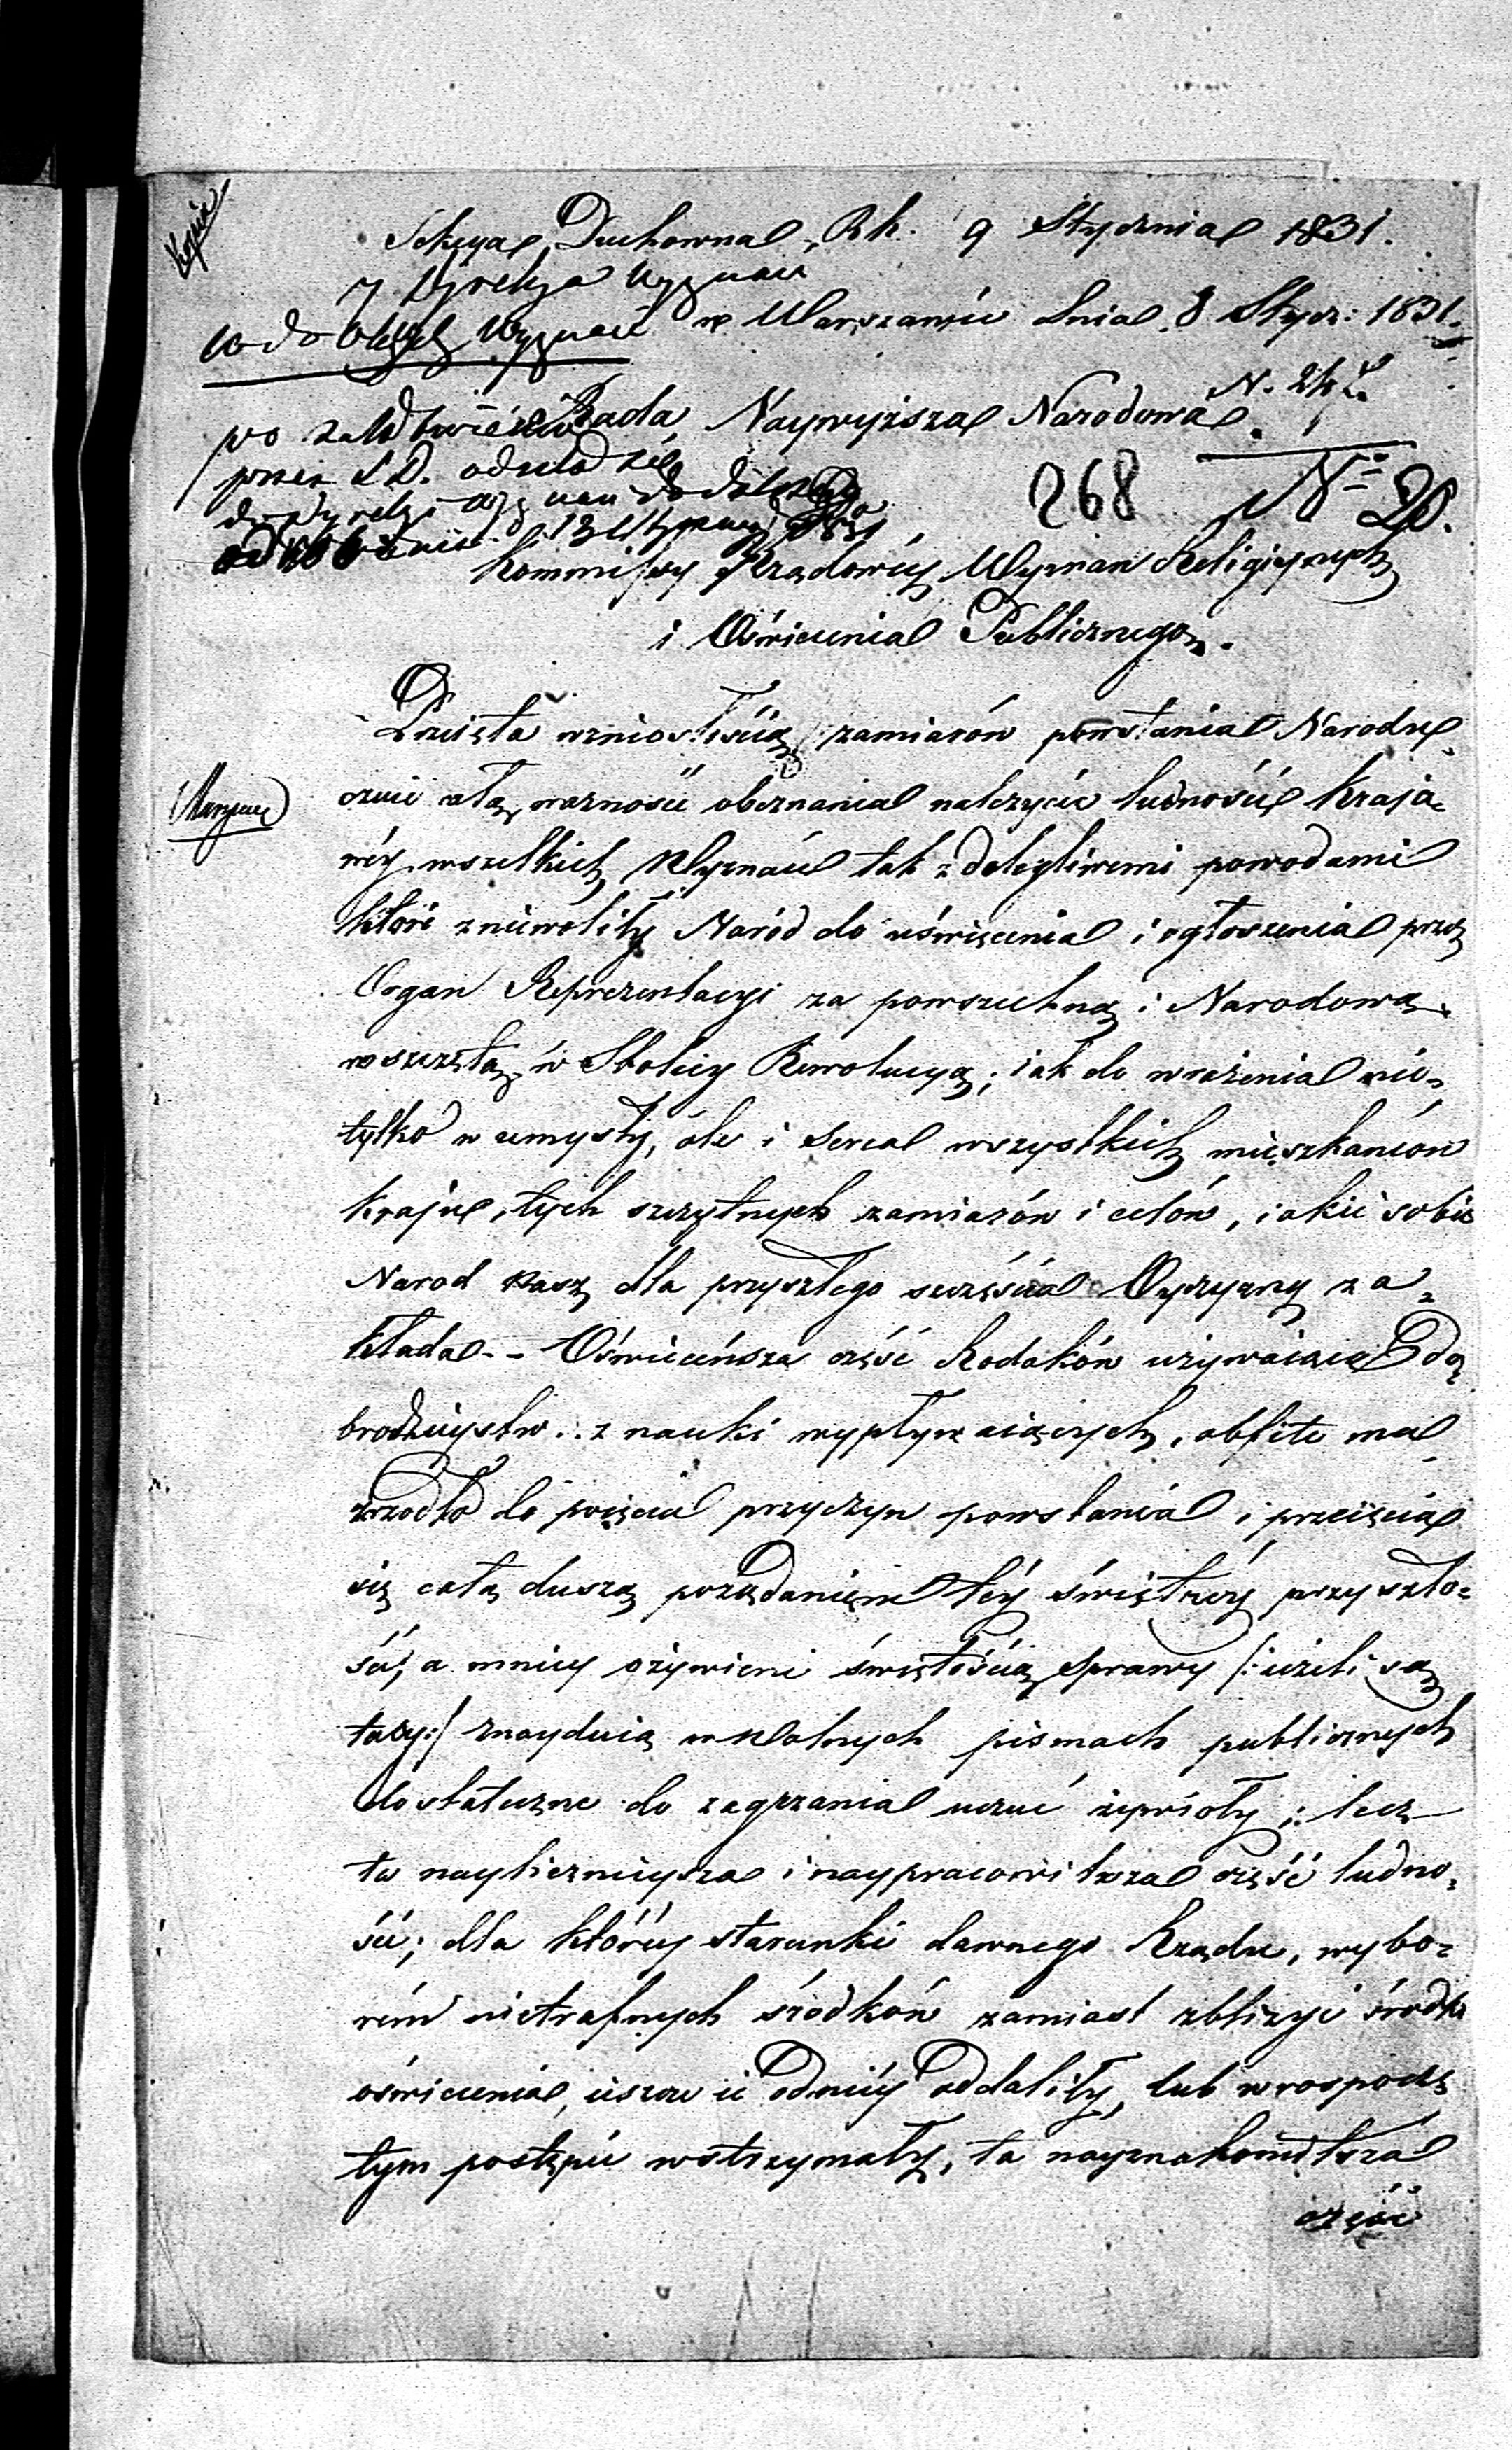 Kopia
Sekcya Duchowna, Rk. 9 Stycznia 1831.
i Dyrekcya Wyznań
w Warszawie dnia 8 Stycz: 1831.
Rada Naywyższa Narodowa.
po załatwieniu
przez S D. odesłać
268 Nº 20.
Kommissyi Rządowéy Wyznan Religiynych
i Oświecenia Publicznego.
Przeięta wzniosłością zamiarów powstania Narodu
czuie całą ważność obeznania należycie ludności kraio-
wéy wszelkich Wyznań tak z dolegliwemi powodami
które zniewoliły Naród do uświęcenia i ogłoszenia przez
Organ Reprezentacyi za powszechną i Narodową
wszczętą w Stolicy Rewolucyą; iak do wrażenia nie-
tylko w umysły, ale i serca wszystkich mieszkańców
kraju, tych szczytnych zamiarów i celów, iakie sobie
Narod nasz dla przyszłego szczęścia Oyczyzny za-
kłada - - Oświeceńsza część Rodaków używaiąca do-
brodzieystw z nauki wypływaiących, obfite ma
źrzodło do poięcia przyczyn powstania i przeięcia
się całą duszą pożądaniem téy świętnéy przyszło-
ści, a mniey ożywieni świętością sprawy /: ieżeli są
tacy :/ znayduią w wolnych pismach publicznych
dostateczne do zagrzania uczuć żywioły; lecz
ta nayliczniejsza i naypracowitsza część ludno-
ści; dla któréy starunki dawnego Rządu, wybo-
rém nietrafnych śrzodków zamiast zbliżyć środki
oświecenia, ieszcze ie od niéy oddaliły, lub w rospoczę
tym postępie wstrzymały, ta nayznakomitsza
część